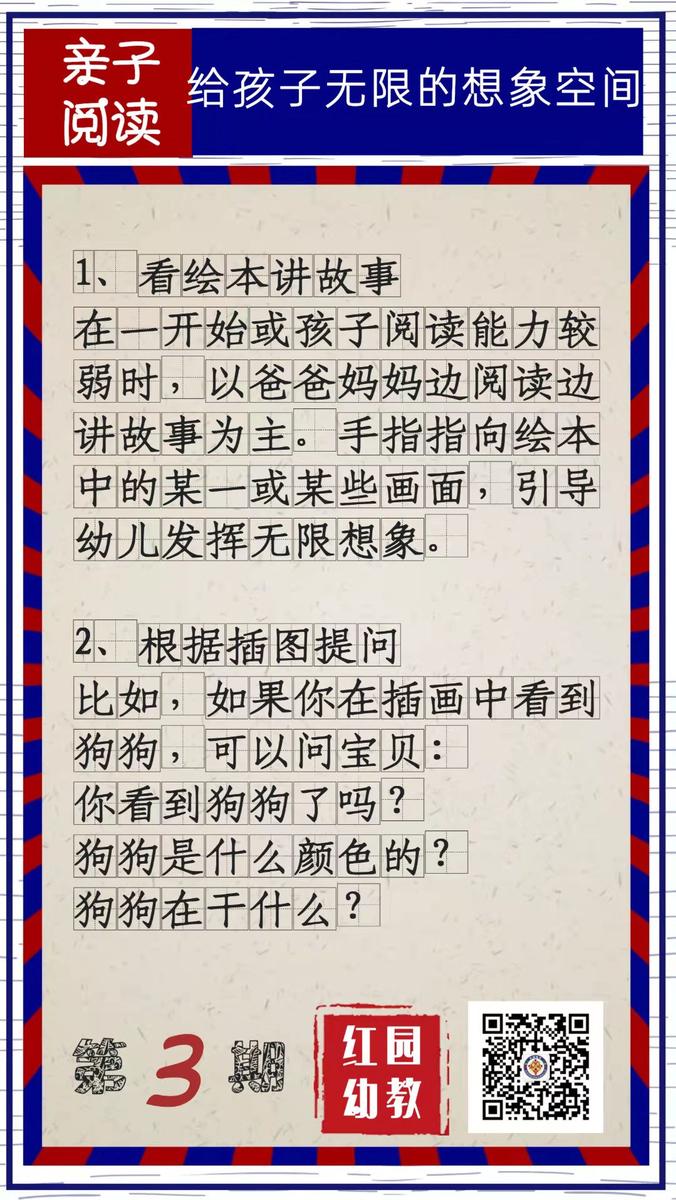 亲子
阅读
给孩子无限的想象空间
1、看绘本讲故事
在一开始或孩子阅读能力较
弱时，以爸爸妈妈边阅读边
讲故事为主。手指指向绘本
中的某一或某些画面，引导
幼儿发挥无限想象。
2、根据插图提问
比如，如果你在插画中看到
狗狗，可以问宝贝：
你看到狗狗了吗？
狗狗是什么颜色的？
狗狗在干什么？
第3期
红园
幼教